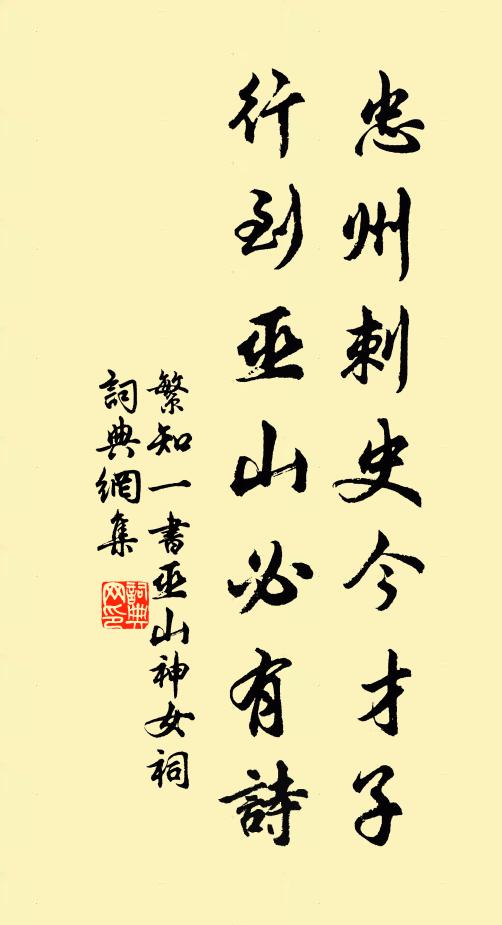 忠州刺史今才子
行到巫山必有詩
繁知一書巫山神女祠
詞典網集
詞典網印